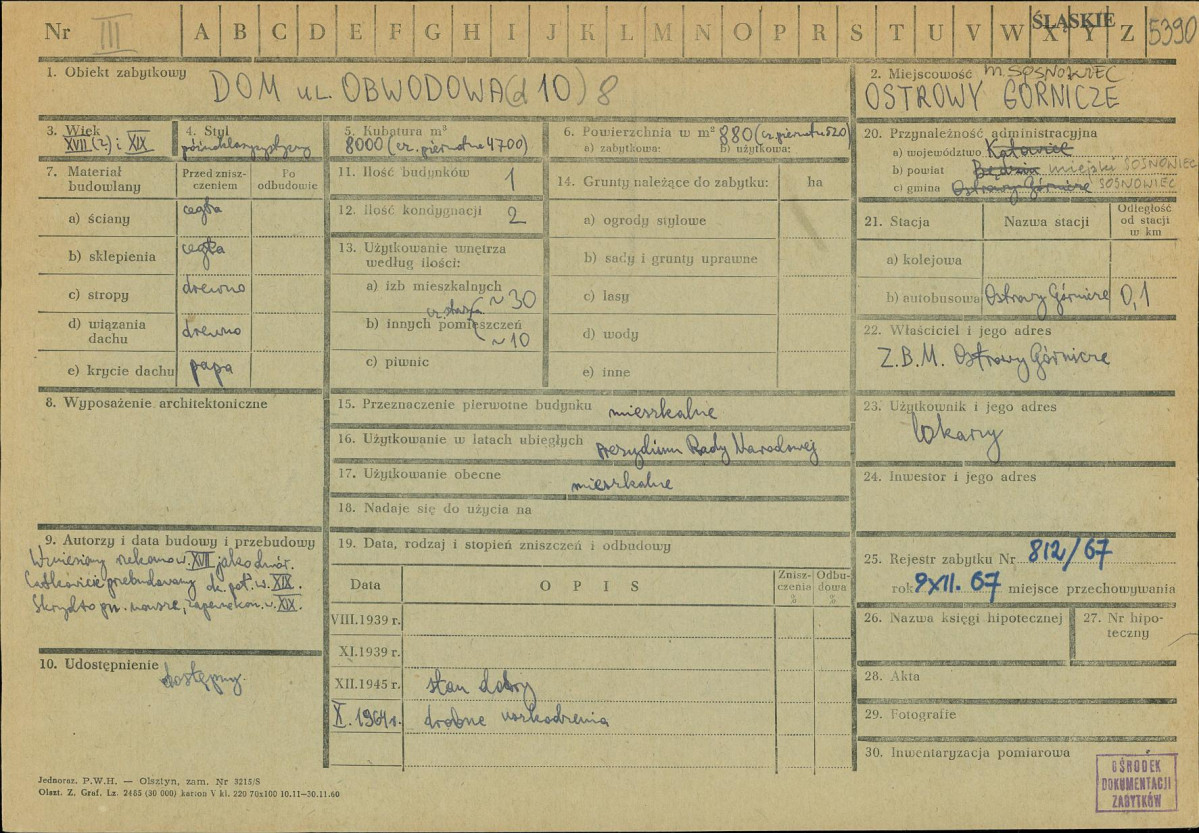 Nr III A B C D E F G H I J K L M N O P R S T U V W X Y Z ŚLĄSKIE 5390
1. Obiekt zabytkowy DOM ul. OBWODOWA (d 10) 8
2. Miejscowość m. SOSNOWIEC
OSTROWY GÓRNICZE
3. Wiek
XVII (?) i XIX
4. Styl
późnoklasycystyczny
5. Kubatura m³
8000 (cz. pierwotna 4700)
6. Powierzchnia w m² 880 (cz. pierwotna 520)
a) zabytkowa: b) użytkowa:
20. Przynależność administracyjna
a) województwo Katowice
b) powiat Będzin miejski SOSNOWIEC
c) gmina Ostrowy Górnicze SOSNOWIEC
7. Materiał budowlany
Przed zniszczeniem
Po odbudowie
a) ściany cegła
b) sklepienia cegła
c) stropy drewno
d) wiązania dachu drewno
e) krycie dachu papa
11. Ilość budynków 1
12. Ilość kondygnacji 2
13. Użytkowanie wnętrza
według ilości:
a) izb mieszkalnych ~ 30
cz. starsza
b) innych pomieszczeń ~ 10
c) piwnic
14. Grunty należące do zabytku: ha
a) ogrody stylowe
b) sady i grunty uprawne
c) lasy
d) wody
e) inne
21. Stacja Nazwa stacji Odległość
od stacji
w km
a) kolejowa
b) autobusowa Ostrowy Górnicze 0,1
22. Właściciel i jego adres
Z.B.M. Ostrowy Górnicze
8. Wyposażenie architektoniczne
15. Przeznaczenie pierwotne budynku mieszkalne
16. Użytkowanie w latach ubiegłych Prezydium Rady Narodowej
17. Użytkowanie obecne
mieszkalne
18. Nadaje się do użycia na
23. Użytkownik i jego adres
lokarzy
24. Inwestor i jego adres
9. Autorzy i data budowy i przebudowy
Wzniesiony rzekomo w XVII jako dwór.
Całkowicie przebudowany dr. poł. w. XIX.
Skrzydło pn. nowsze, zapewne kon. w. XIX.
10. Udostępnienie
dostępny.
19. Data, rodzaj i stopień zniszczeń i odbudowy
Data OPIS Zniszczenia % Odbudowa %
VIII.1939 r.
XI.1939 r.
XII.1945 r. stan dobry
X. 1964 r. drobne uszkodzenia
25. Rejestr zabytku Nr 812/67
rok 9 XII. 67 miejsce przechowywania
26. Nazwa księgi hipotecznej
27. Nr hipoteczny
28. Akta
29. Fotografie
30. Inwentaryzacja pomiarowa
OŚRODEK
DOKUMENTACJI
ZABYTKÓW
Jednoraz. P.W.H. — Olsztyn, zam. Nr 3215/S
Olszt. Z. Graf. Lz. 2485 (30 000) karton V kl. 220 70x100 10.11—30.11.60